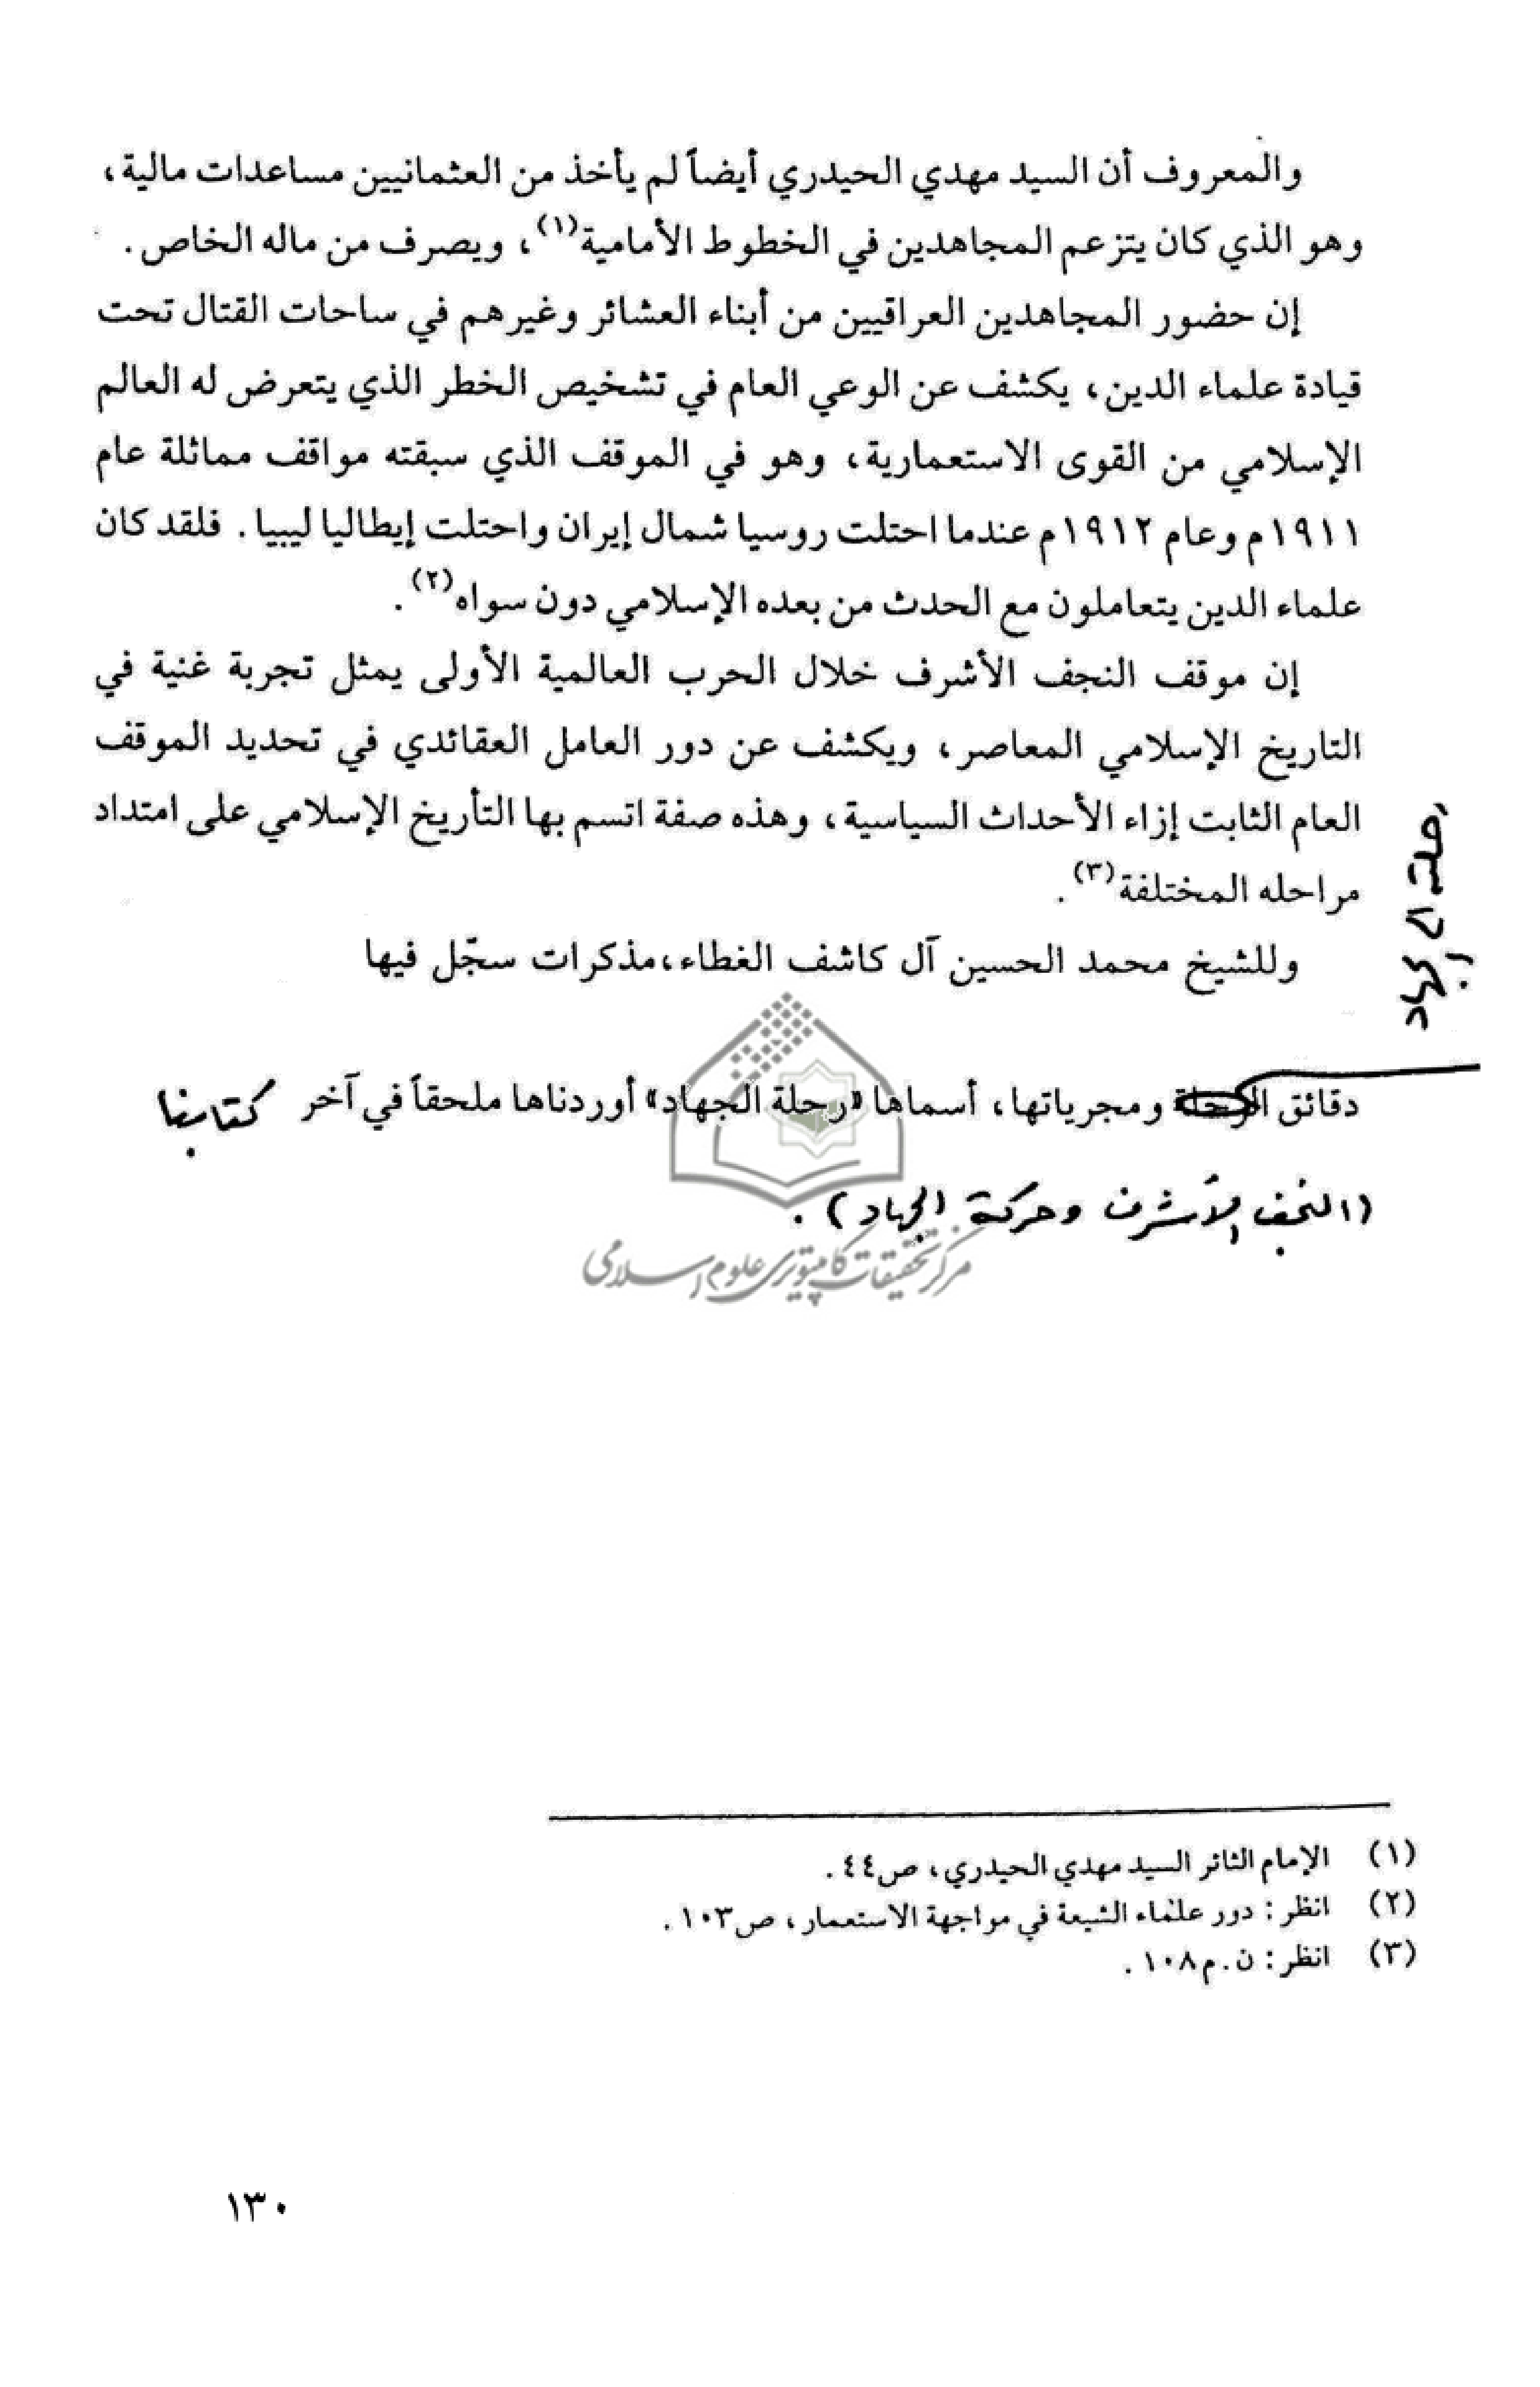 والمعروف أن السيد مهدي الحيدري أيضاً لم يأخذ من العثمانيين مساعدات مالية،
وهو الذي كان يتزعم المجاهدين في الخطوط الأمامية(١)، ويصرف من ماله الخاص.
إن حضور المجاهدين العراقيين من أبناء العشائر وغيرهم في ساحات القتال تحت
قيادة علماء الدين، يكشف عن الوعي العام في تشخيص الخطر الذي يتعرض له العالم
الإسلامي من القوى الاستعمارية، وهو في الموقف الذي سبقته مواقف مماثلة عام
١٩١١م وعام ١٩١٢م عندما احتلت روسيا شمال إيران واحتلت إيطاليا ليبيا. فلقد كان
علماء الدين يتعاملون مع الحدث من بعده الإسلامي دون سواه(٢).
إن موقف النجف الأشرف خلال الحرب العالمية الأولى يمثل تجربة غنية في
التاريخ الإسلامي المعاصر، ويكشف عن دور العامل العقائدي في تحديد الموقف
العام الثابت إزاء الأحداث السياسية، وهذه صفة اتسم بها التأريخ الإسلامي على امتداد
مراحله المختلفة(٣).
وللشيخ محمد الحسين آل كاشف الغطاء، مذكرات سجّل فيها
دقائق الرحلة ومجرياتها، أسماها «رحلة الجهاد» أوردناها ملحقاً في آخر كتابنا
(النجف الأشرف وحركة الجهاد).
مركز تحقيقات كامپيوتری علوم اسلامی
(١) الإمام الثائر السيد مهدي الحيدري، ص٤٤.
(٢) انظر: دور علماء الشيعة في مواجهة الاستعمار، ص١٠٣.
(٣) انظر: ن.م١٠٨.
١٣٠